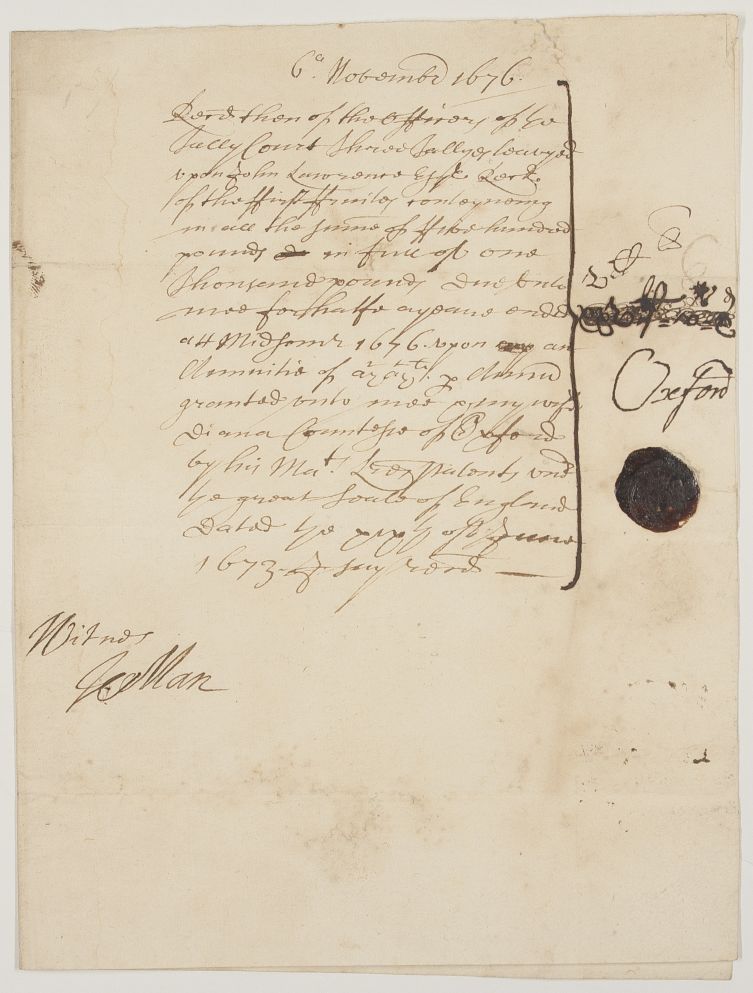 6º. Novembr 1676.
Recd. then of the Officers of ye
Tally Court Three Tallyes leavyed
upon John Lawrence Esqr. Recr.
of the ffirst ffruites conteyneing
in all the sume of ffive hundred
pounds in full of one
Thousand pounds Due unto
mee for halfe a yeare ended
att Midsomr 1676. upon an
Annuitie of p Annu
granted unto mee & my wife
Diana Countesse of Oxford
by his Mats. Lres Patents undr
ye great Seale of England
Dated ye of June
1673. I say recd
£ s d
v.c
Oxford
Witnes
Man